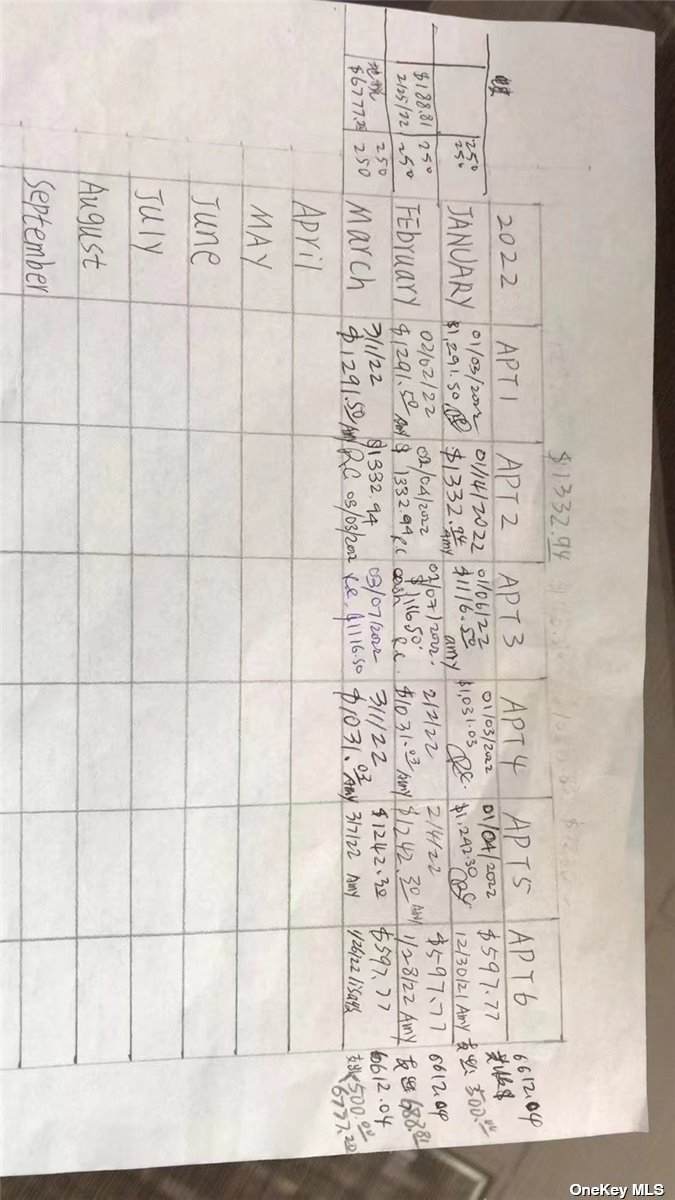 $1332.94
2022 APT 1 APT 2 APT 3 APT 4 APT 5 APT 6
6612.04
250
250
JANUARY
01/03/2022
$1,291.50
01/14/2022
$1332.94
Amy
01/06/22
$1116.50
amy
01/03/2022
$1,031.03
01/04/2022
$1,242.30
$597.77
12/30/21 Amy
500.00
$188.81
2/25/22
250
250
FEbruary
02/02/22
$1291.50 Amy
02/04/2022
$1332.94 R.C
02/07/2022.
$1116.50.
cash R.C.
2/2/22
$1031.03 Amy
2/4/22
$1242.30 Amy
$597.77
1/28/22 Amy
6612.04
688.81
地税
$6777.20
250
250
March
3/1/22
$1291.50 Amy
$1332.94
R.C 03/03/2022
03/07/2022
R.C. $1116.50
3/1/22
$1031.03 Amy
$1242.30
3/7/22 Amy
$597.77
6612.04
500.00
6777.20
April
MAY
June
July
August
September
OneKey MLS